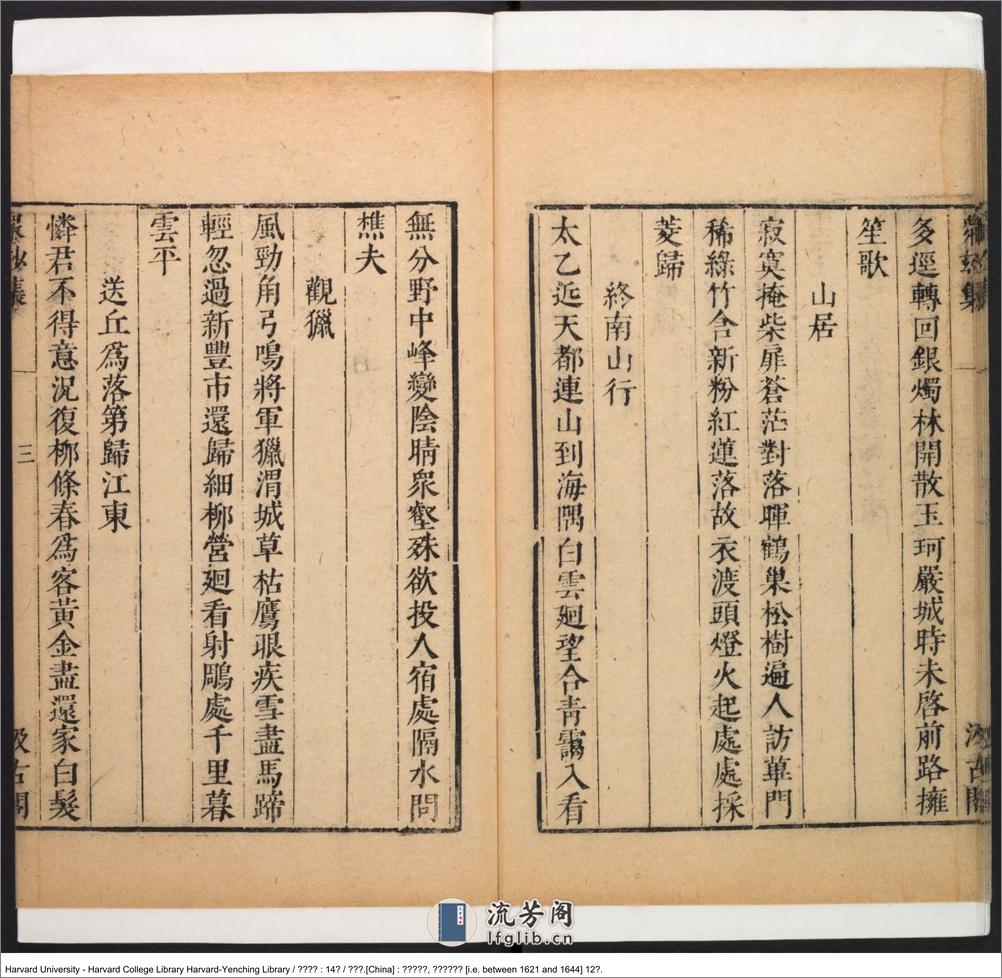 多逕轉回銀燭林開散玉珂嚴城時未啓前路擁
笙歌
山居
寂寞掩柴扉蒼茫對落暉鶴巢松樹遍人訪蓽門
稀綠竹含新粉紅蓮落故衣渡頭燈火起處處採
菱歸
終南山行
太乙近天都連山到海隅白雲廻望合青靄入看
無分野中峰變陰晴衆壑殊欲投人宿處隔水問
樵夫
觀獵
風勁角弓鳴將軍獵渭城草枯鷹眼疾雪盡馬蹄
輕忽過新豐市還歸細柳營廻看射鵰處千里暮
雲平
送丘爲落第歸江東
憐君不得意況復柳條春爲客黃金盡還家白髮
三
汲古閣
流芳阁
lfglib.cn
Harvard University - Harvard College Library Harvard-Yenching Library / ???? : 14? / ???.[China] : ?????, ?????? [i.e. between 1621 and 1644] 12?.